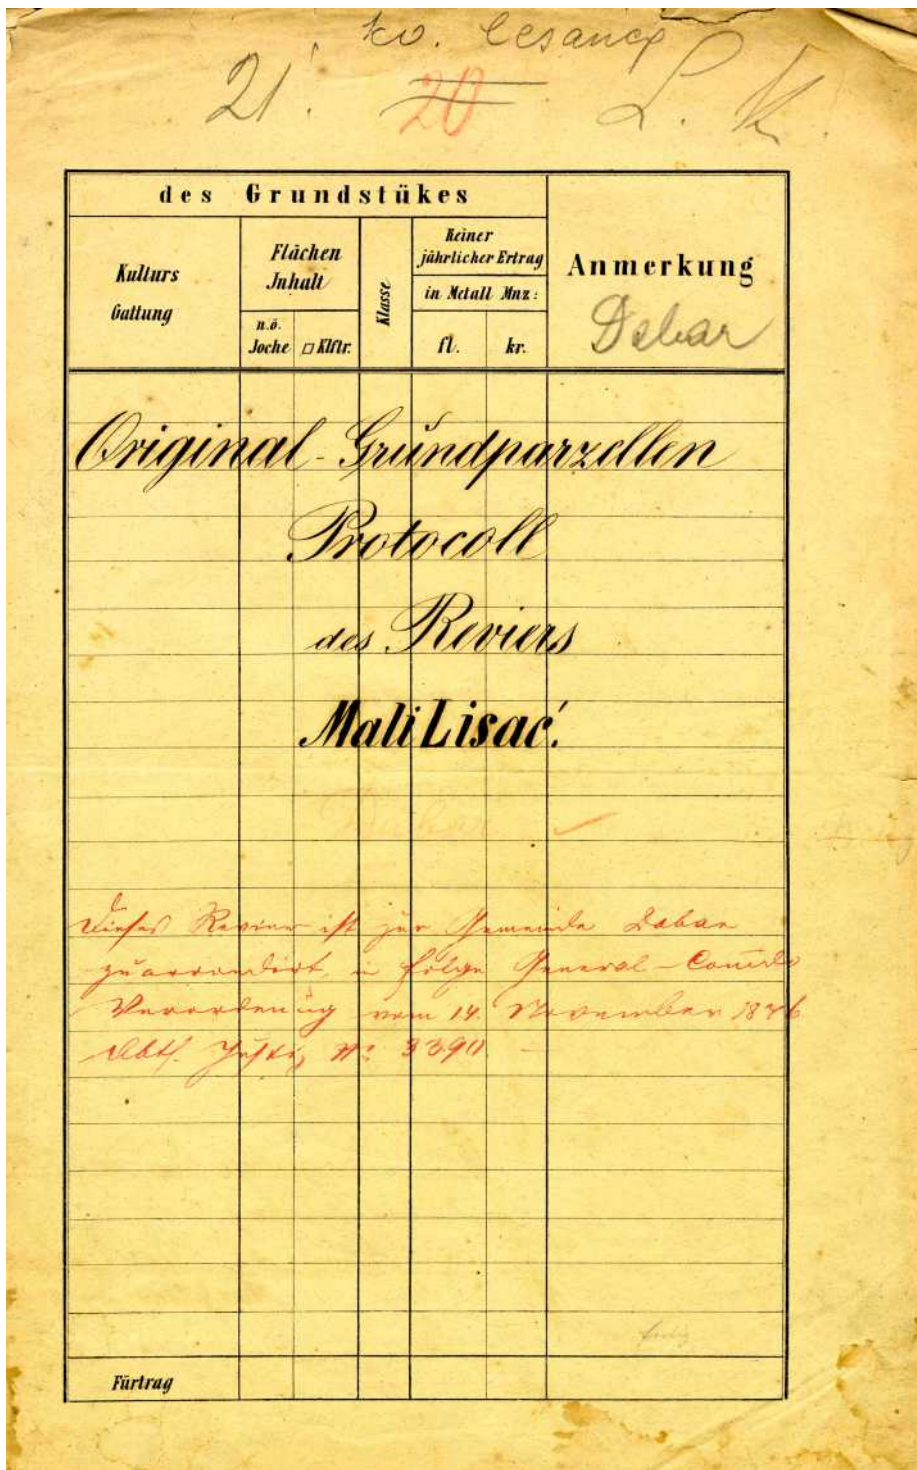 kv. Cesarica
21. 20 L. K.
des Grundstükes
Kulturs
Gattung
Flächen
Inhalt
n.ö.
Joche □ Klftr.
Klasse
Reiner
jährlicher Ertrag
in Metall Mnz:
fl. kr.
Anmerkung
Dabar
Original-Grundparzellen
Protocoll
des Reviers
Mali Lisać.
Dabar
Dieses Revier ist zur Gemeinde Dabar
zuarrondirt, in Folge General-Comdo
Verordnung vom 14. November 1876
Abth. Justiz No 3390
Fürtrag